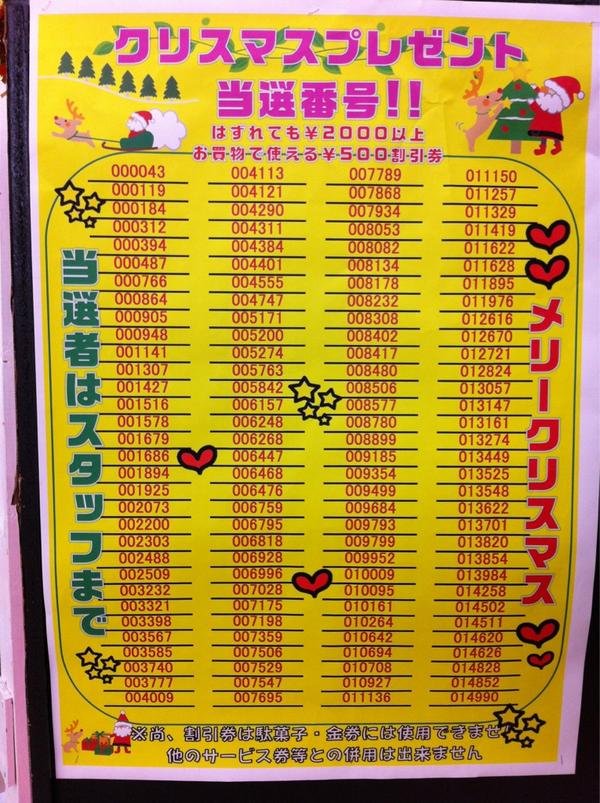 クリスマスプレゼント
当選番号!!
はずれても¥2000以上
お買物で使える¥500割引券
当選者はスタッフまで
000043
000119
000184
000312
000394
000487
000766
000864
000905
000948
001141
001307
001427
001516
001578
001679
001686
001894
001925
002073
002200
002303
002488
002509
003232
003321
003398
003567
003585
003740
003777
004009
004113
004121
004290
004311
004384
004401
004555
004747
005171
005200
005274
005763
005842
006157
006248
006268
006447
006468
006476
006759
006795
006818
006928
006996
007028
007175
007198
007359
007506
007529
007547
007695
007789
007868
007934
008053
008082
008134
008178
008232
008308
008402
008417
008480
008506
008577
008780
008899
009185
009354
009499
009684
009793
009799
009952
010009
010095
010161
010264
010642
010694
010708
010927
011136
011150
011257
011329
011419
011622
011628
011895
011976
012616
012670
012721
012824
013057
013147
013161
013274
013449
013525
013548
013622
013701
013820
013854
013984
014258
014502
014511
014620
014626
014828
014852
014990
メリークリスマス
※尚、割引券は駄菓子・金券には使用できませ
他のサービス券等との併用は出来ません